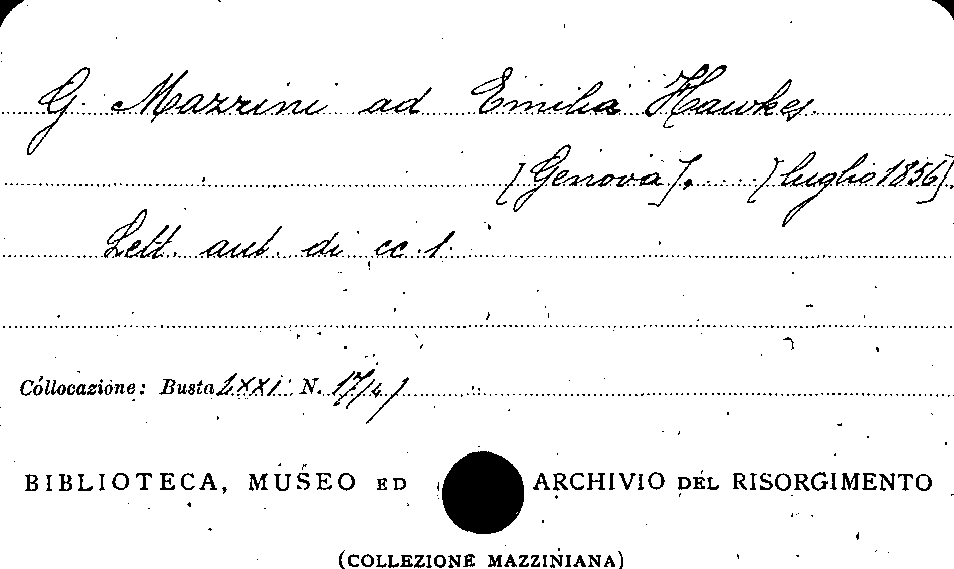 G. Mazzini ad Emilia Hawkes.
[Genova], [luglio 1856]
Lett. aut. di cc. 1.
Collocazione: Busta LXXI N. 17/4/
BIBLIOTECA, MUSEO ED ARCHIVIO DEL RISORGIMENTO
(COLLEZIONE MAZZINIANA)